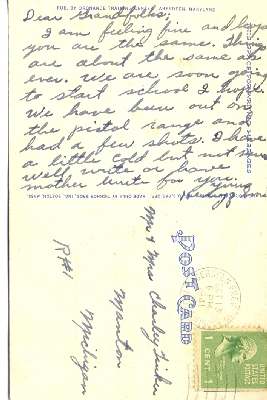 PUB. BY ORDNANCE TRAINING CENTER, ABERDEEN, MARYLAND
Dear Grandfolks,
I am feeling fine and hope
you are the same. Things
are about the same as
ever. We are soon going
to start school I hope.
We have been out on
the pistol range and
had a few shots. I have
a little cold but not much
Well write or have
mother write for you.
Young
POST CARD
Mr & Mrs Charley
Manton
Michigan
R#1
UNITED
STATES
POSTAGE
1 CENT 1